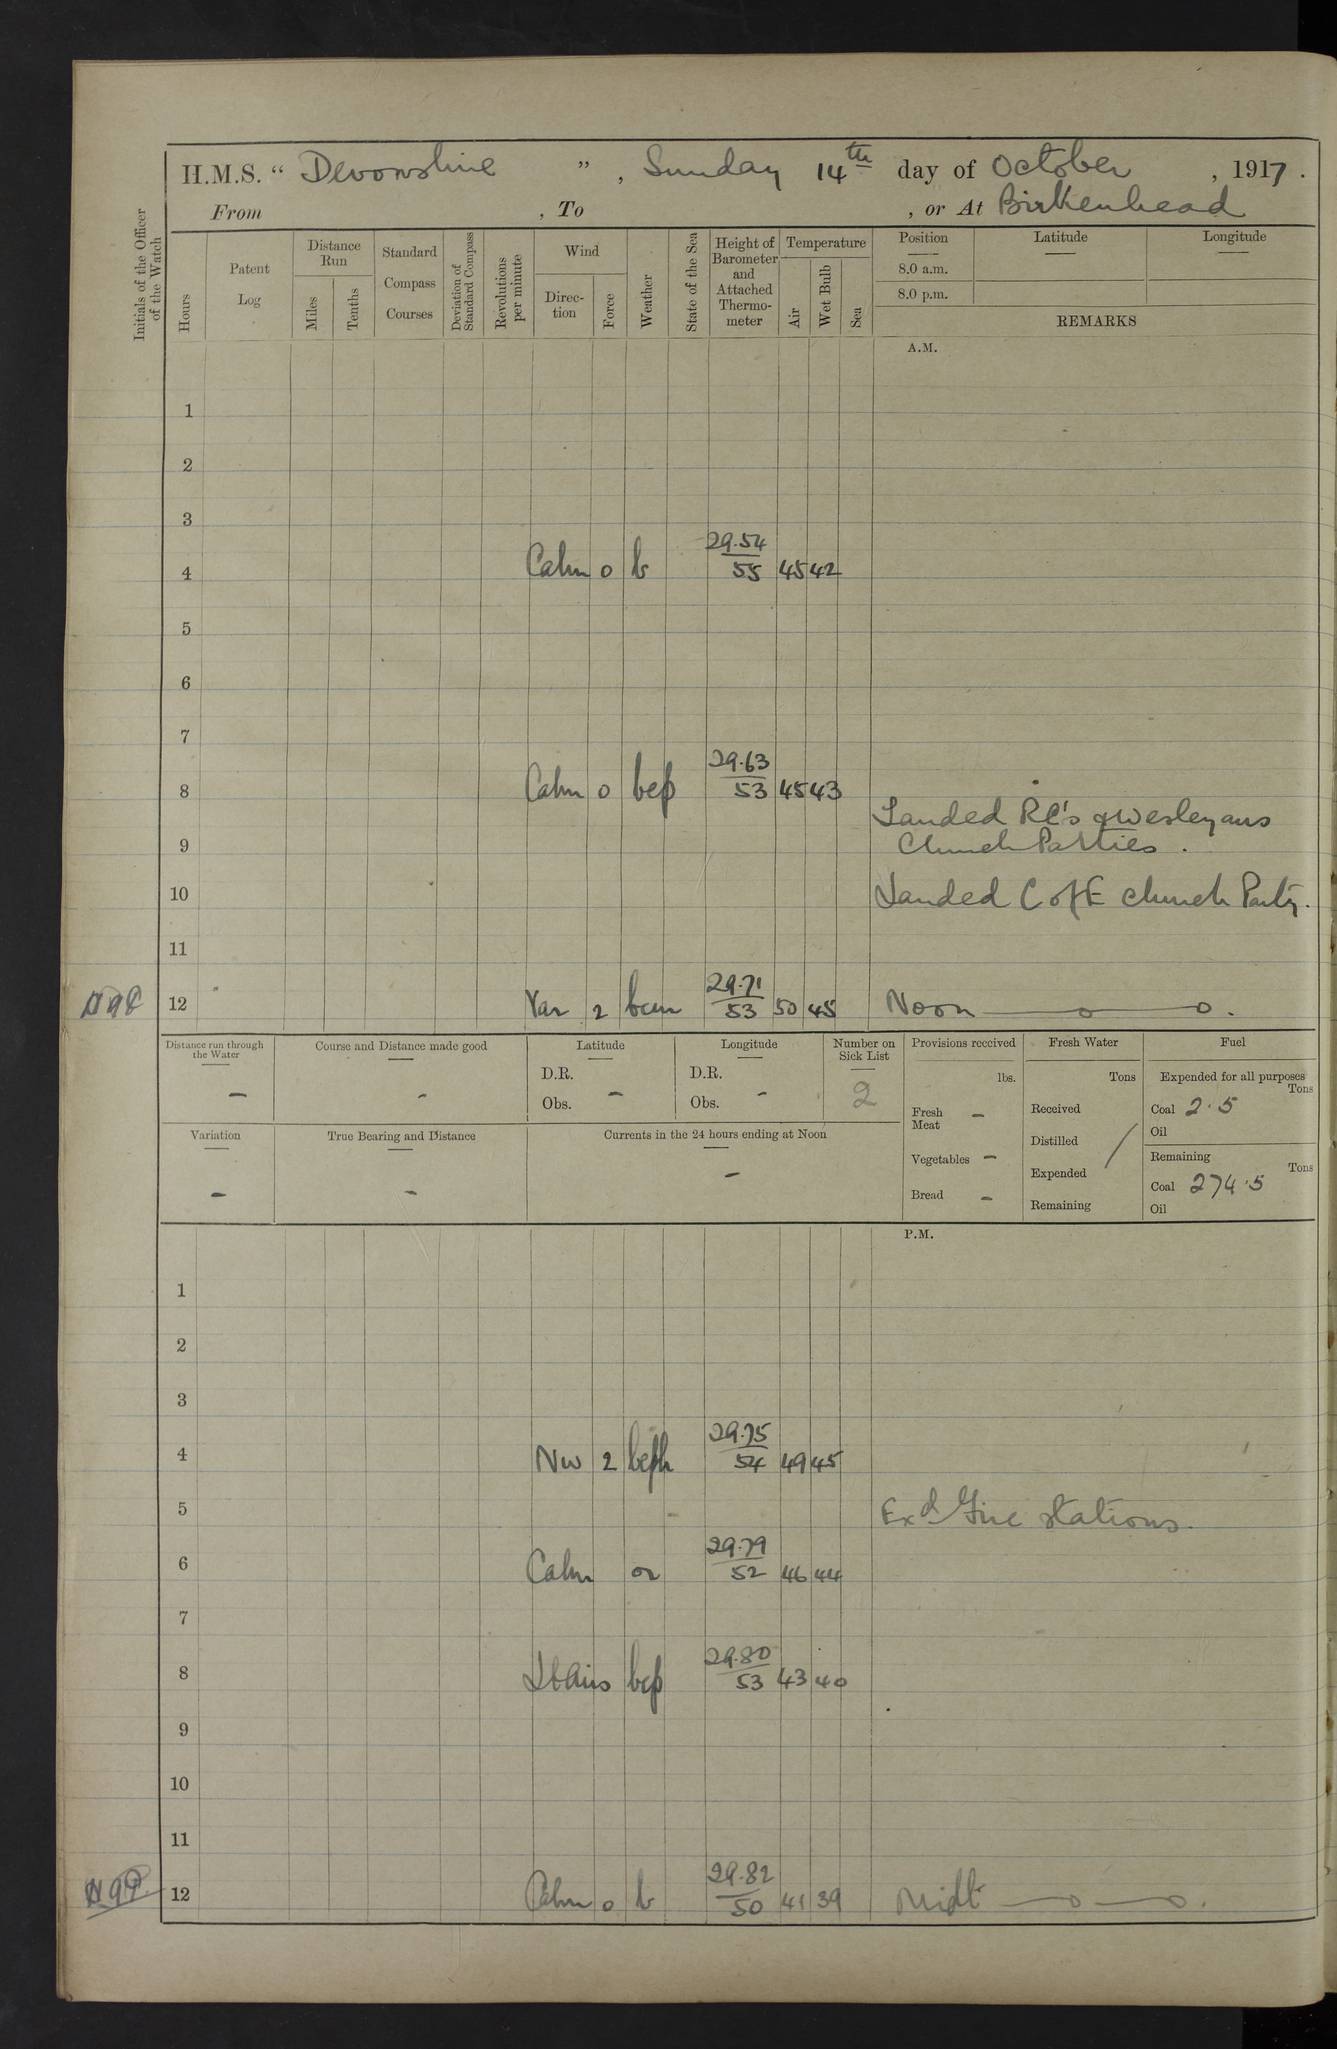 H.M.S. “ Devonshire ” , Sunday 14th day of October , 1917 .
From , To , or At Birkenhead
Initials of the Officer of the Watch
Hours
Patent Log
Distance Run
Miles
Tenths
Standard Compass Courses
Deviation of Standard Compass
Revolutions per minute
Wind
Direc-tion
Force
Weather
State of the Sea
Height of Barometer and Attached Thermo-meter
Temperature
Air
Wet Bulb
Sea
Position
8.0 a.m.
8.0 p.m.
Latitude
Longitude
REMARKS
A.M.
1
2
3
4 Calm 0 b 29.54 55 45 42
5
6
7
8 Calm 0 bcp 29.63 53 45 43
Landed RC's & Wesleyans
9 Church Parties .
10 Landed C of E Church Party.
11
12 Var 2 bcm 29.71 53 50 45 Noon
Distance run through the Water
-
Course and Distance made good
-
Latitude
D.R.
Obs. -
Longitude
D.R.
Obs. -
Number on Sick List
2
Provisions received
lbs.
Fresh Meat -
Vegetables -
Bread -
Fresh Water
Tons
Received
Distilled
Expended
Remaining
Fuel
Expended for all purposes
Tons
Coal 2.5
Oil
Remaining
Tons
Coal 274.5
Oil
Variation
-
True Bearing and Distance
-
Currents in the 24 hours ending at Noon
-
P.M.
1
2
3
4 NW 2 bcph 29.75 54 49 45
5 Exd Fire stations.
6 Calm or 29.79 52 46 44
7
8 Lt Airs bcp 29.80 53 43 40
9
10
11
12 Calm 0 b 29.82 50 41 39 Midt